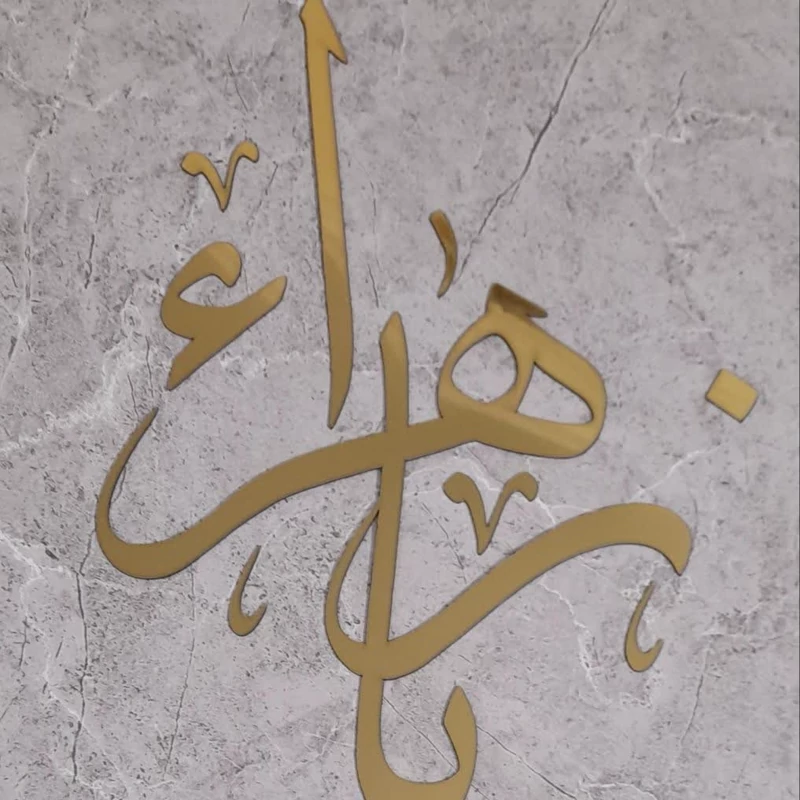 يا زهراء